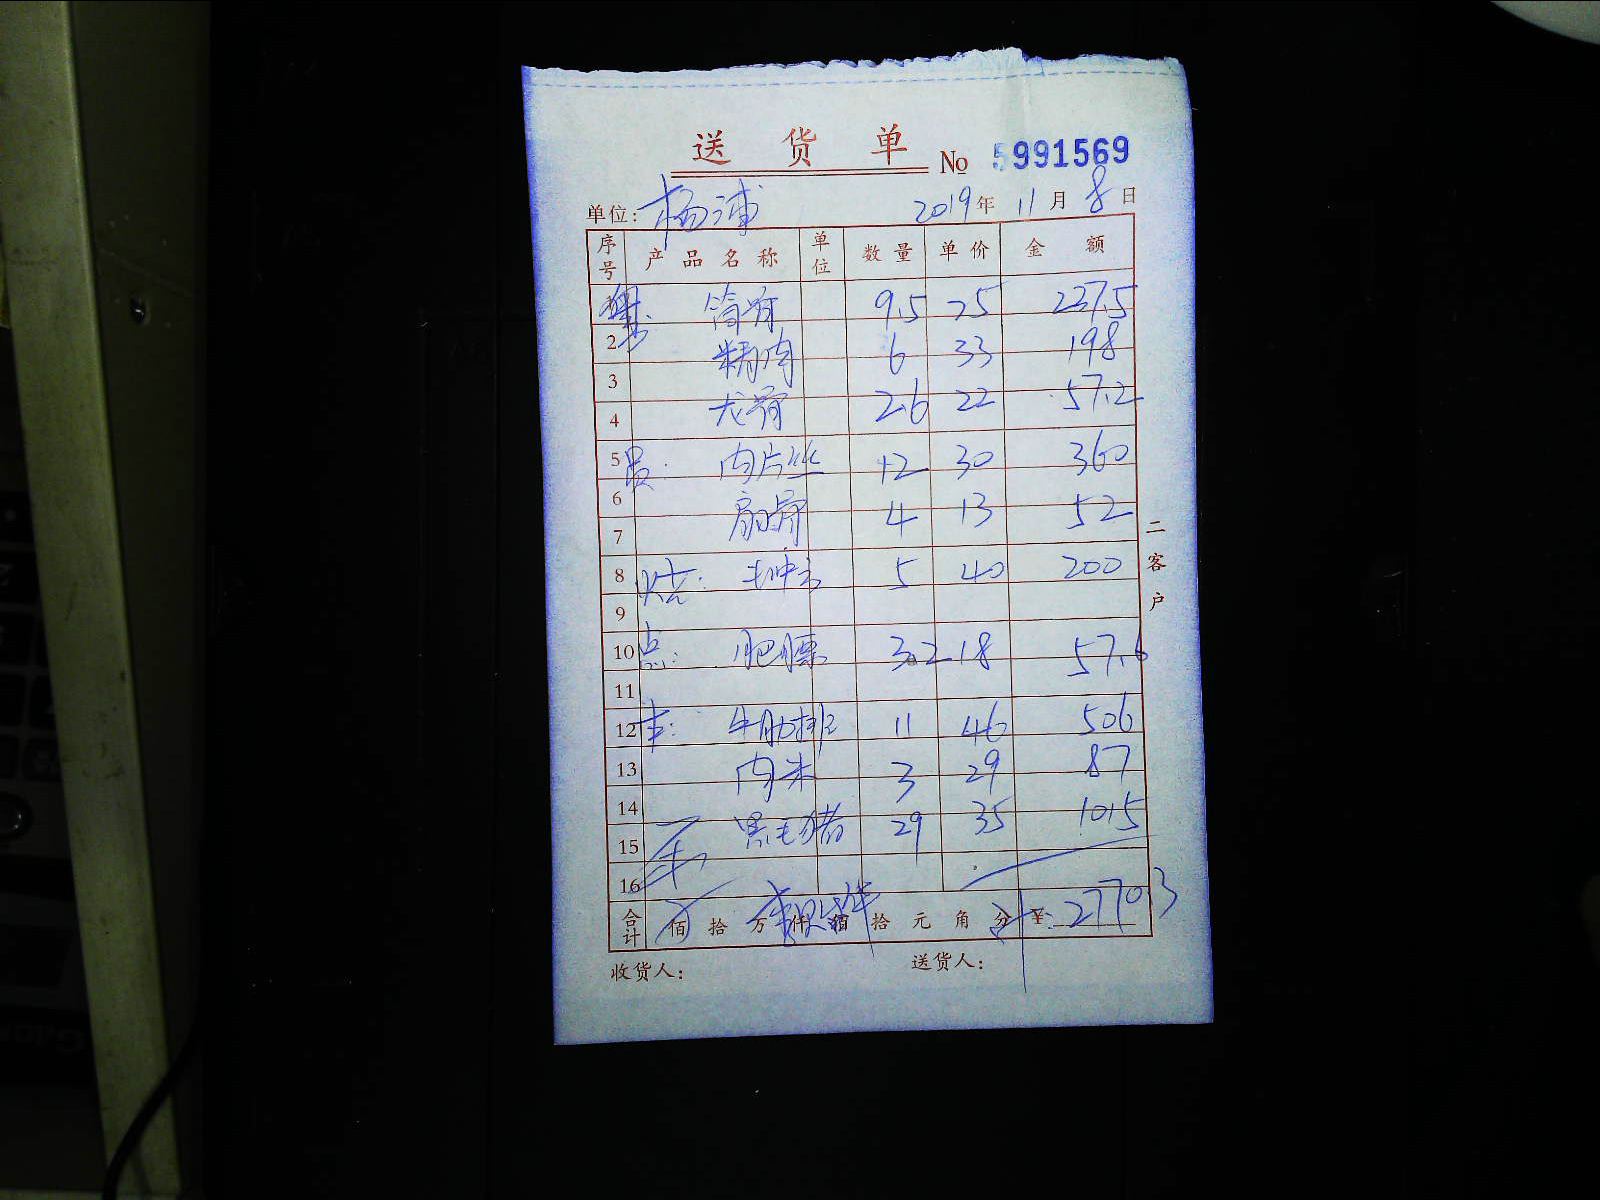 送货单 No 5991569
单位: 杨浦 2019年 11月 8日
序号 产品名称 单位 数量 单价 金额
筒骨 9.5 25 237.5
2 精肉 6 33 198
3 龙骨 2.6 22 57.2
4
5 员: 肉片丝 12 30 360
6 扇骨 4 13 52
7
8 烧: 5 40 200
9
10 点: 肥膘 3.2 18 57.6
11
12 牛肋排 11 46 506
13 肉米 3 29 87
14 黑毛猪 29 35 1015
15
16
合计 佰拾万仟佰拾元角分 ¥: 2770.3
收货人: 送货人:
二客户